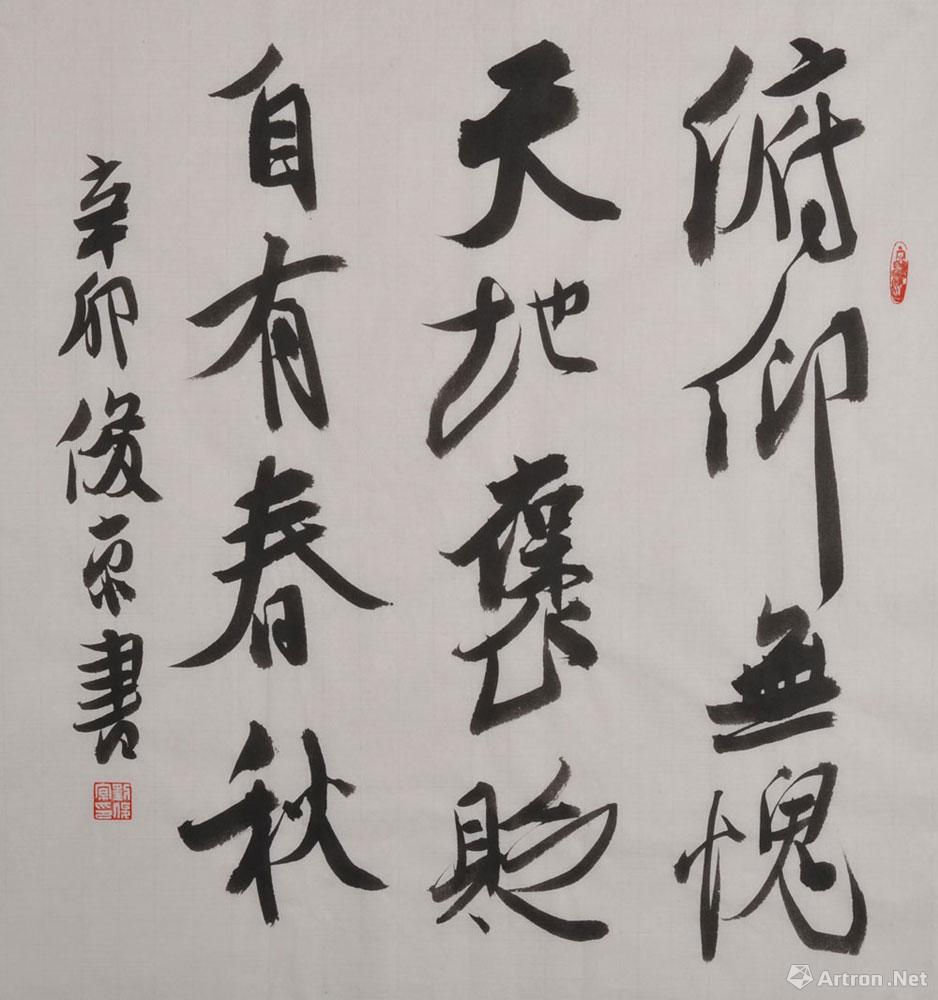 俯仰無愧
天地褒貶
自有春秋
辛卯俊京書
Artron.Net